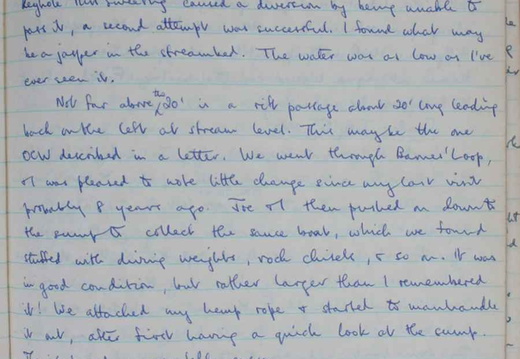 caused a diversion by being unable to
pass it, a second attempt was successful. I found what may
be a jasper in the streambed. The water was as low as I've
ever seen it.
Not far above the 20' is a rift passage about 20' long leading
back on the left at stream level. This may be the one
OCW described in a letter. We went through Barnes' Loop,
& I was pleased to note little change since my last visit
probably 8 years ago. Joe & I then pushed on down to
the sump to collect the sauce boat, which we found
stuffed with diving weights, rock chisels, & so on. It was
in good condition, but rather larger than I remembered
it! We attached my hemp rope & started to manhandle
it out, after first having a quick look at the sump.